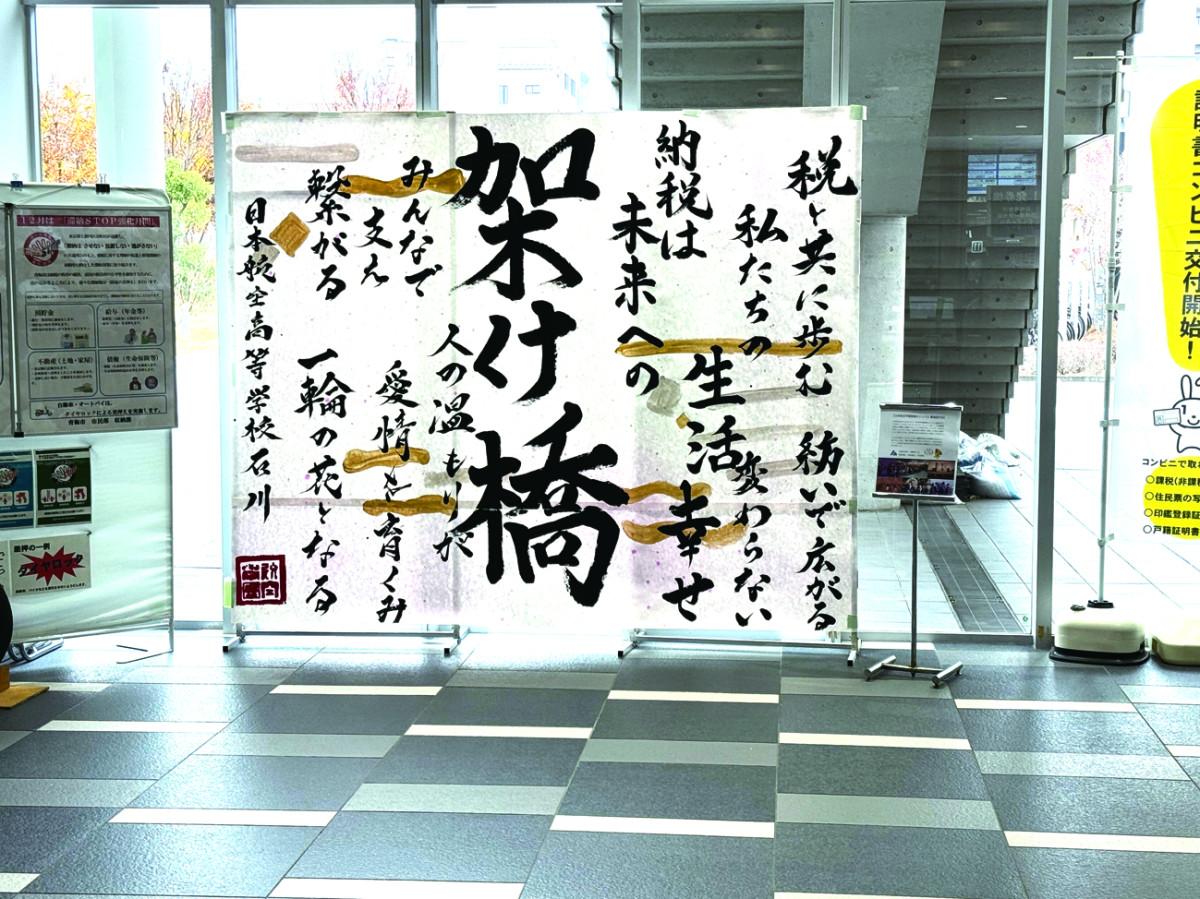 税と共に歩む
私たちの
生活
紡いで広がる
変わらない
幸せ
納税は
未来への
架け橋
みんなで
支え
繋がる
人の温もりが
愛情を育くみ
一輪の花となる
日本航空高等学校石川
12月は「滞納STOP強化月間」
預貯金
給与(年金等)
不動産(土地・家屋)
債権(生命保険等)
自動車・オートバイは、
タイヤロックによる差押えを実施します。
青梅市 市民部 収納課
差押の一例
タイヤロック
証明書コンビニ交付開始!
コンビニで取
○課税(非課
○住民票の写
○印鑑登録証
○戸籍証明書